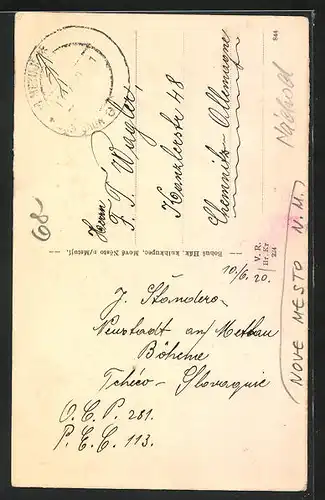 844
Herrn
F. T. Wagler,
Kanzlerstr 48
Chemnitz Allemagne
Náchod
68
Bohuš Hák, knihkupec, Nové Město n/Metují.
V. R.
Br. Kr
224
NOVE MESTO N. M.
10/6. 20.
J. Standera
Neustadt an/Mettau
Böhme
Tchéco-Slovaquie
O.C.P. 281.
P.E.C. 113.